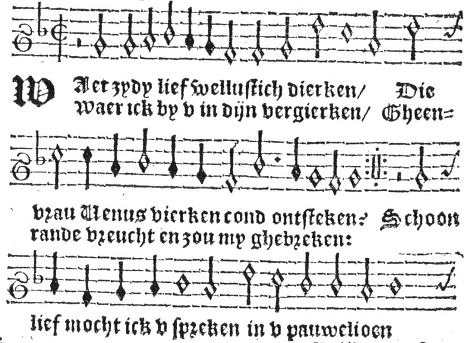 WAer zydy lief wellustich dierken/ Die
waer ick by v in dijn vergierken/ Gheen=
vrau Uenus vierken cond ontsteken? Schoon
rande vreucht en zou my ghebreken:
lief mocht ick v spreken in v pauwelioen